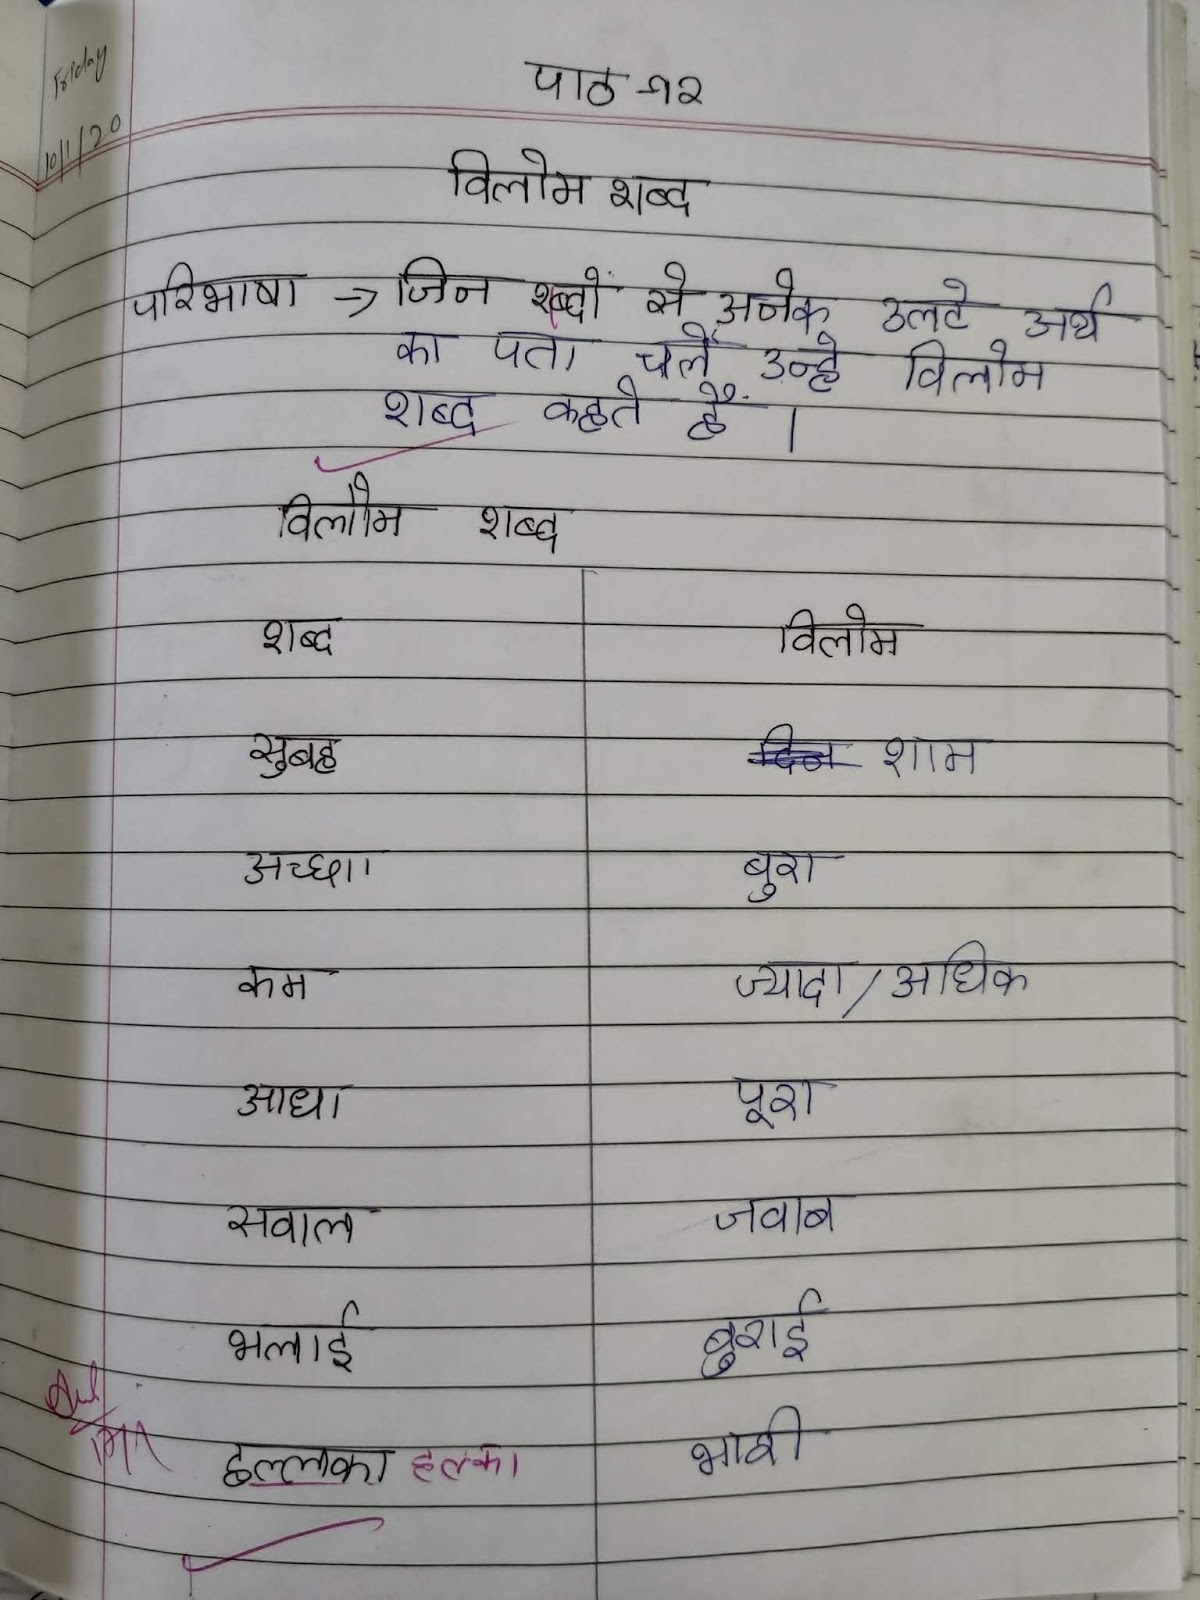 Friday
10/1/20
पाठ -१२
विलोम शब्द
परिभाषा → जिन शब्दों से अनेक उलटे अर्थ
का पता चलें उन्हे विलोम
शब्द कहते हैं |
विलोम शब्द
शब्द विलोम
सुबह दिन शाम
अच्छा बुरा
कम ज्यादा / अधिक
आधा पूरा
सवाल जवाब
भलाई बुराई
हल्लका हलका भारी